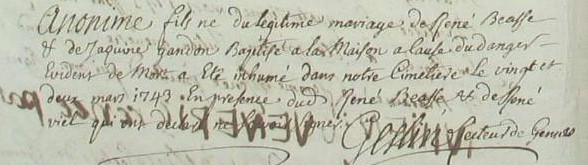 Anonime fils né du légitime mariage de René Beasse
& de Jaquine gandon Baptisé a la Maison a Cause du danger
Evident de Mort a Eté inhumé dans notre Cimetiere Le vingt et
deux mars 1743 En presence dud René Beasse & de René
viel qui ont declaré ne Savoir signer
Geslin Recteur de Gennes